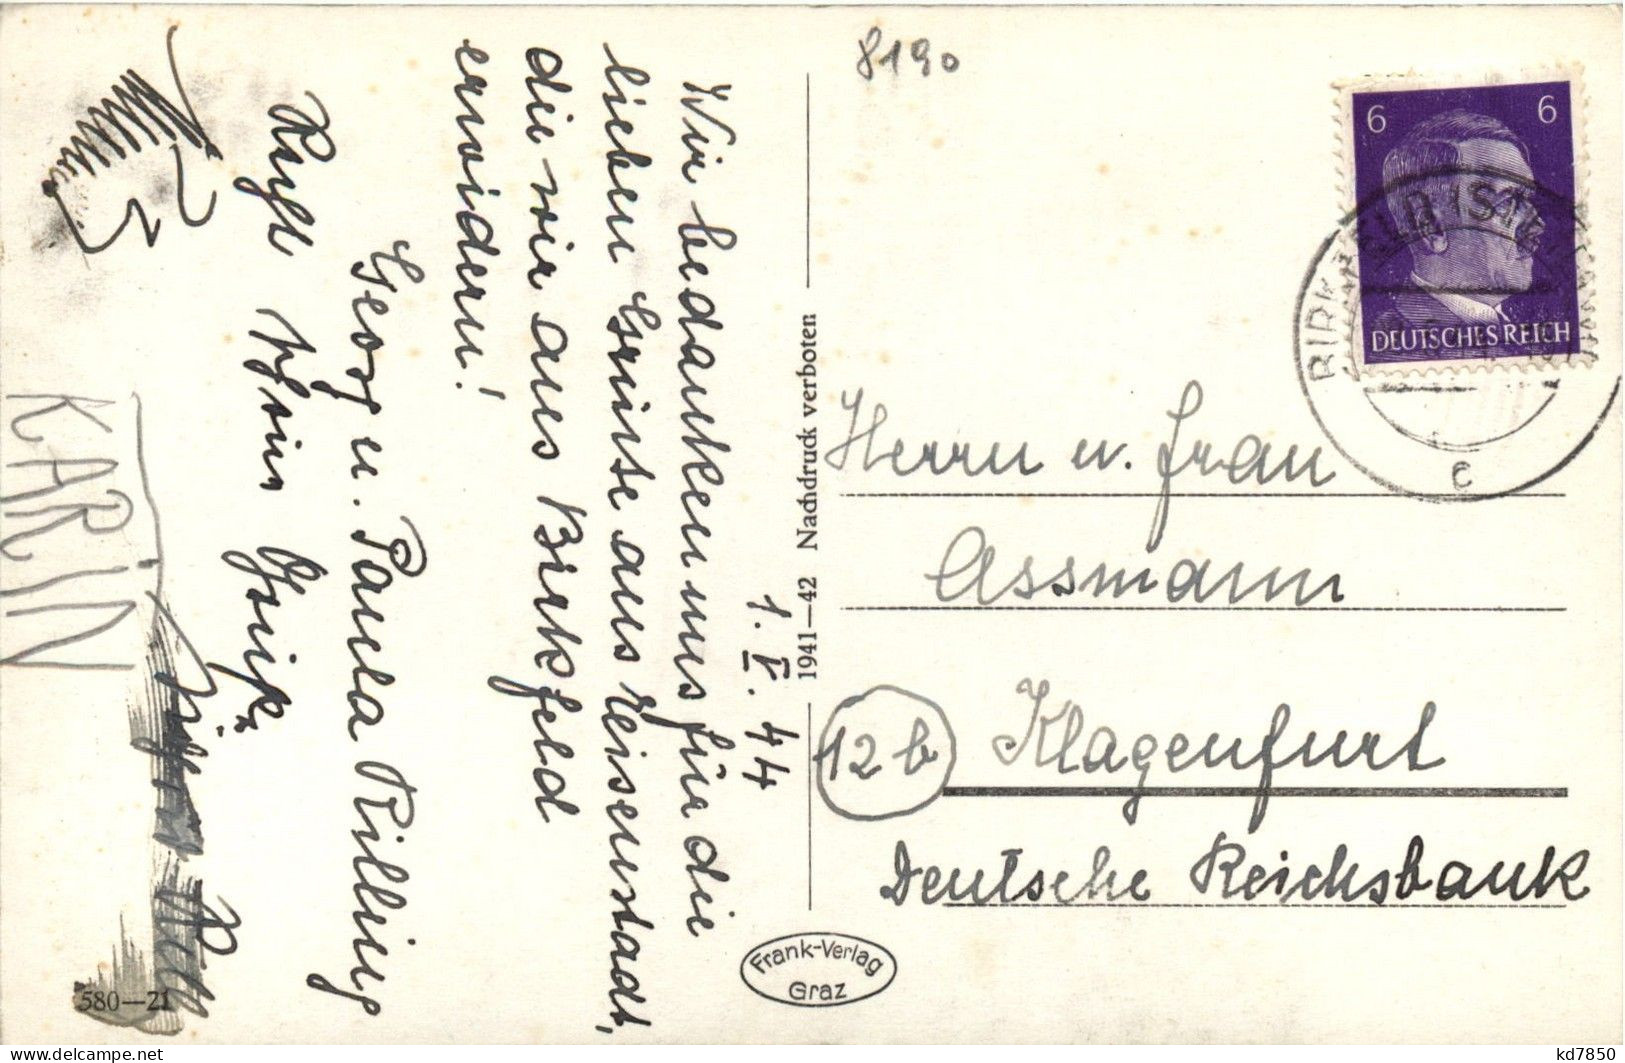 8190
6 6
DEUTSCHES REICH
BIRKFELD (STEIERMARK)
c
1. V. 44
Wir bedanken uns für die
lieben Grüsse aus Eisenstadt,
die wir aus Birkfeld
erwidern!
Georg u. Paula Rilling
KARIN
1941—42 Nachdruck verboten
Herrn u. Frau
Assmann
12b Klagenfurt
Deutsche Reichsbank
Frank-Verlag
Graz
580—21
kd7850